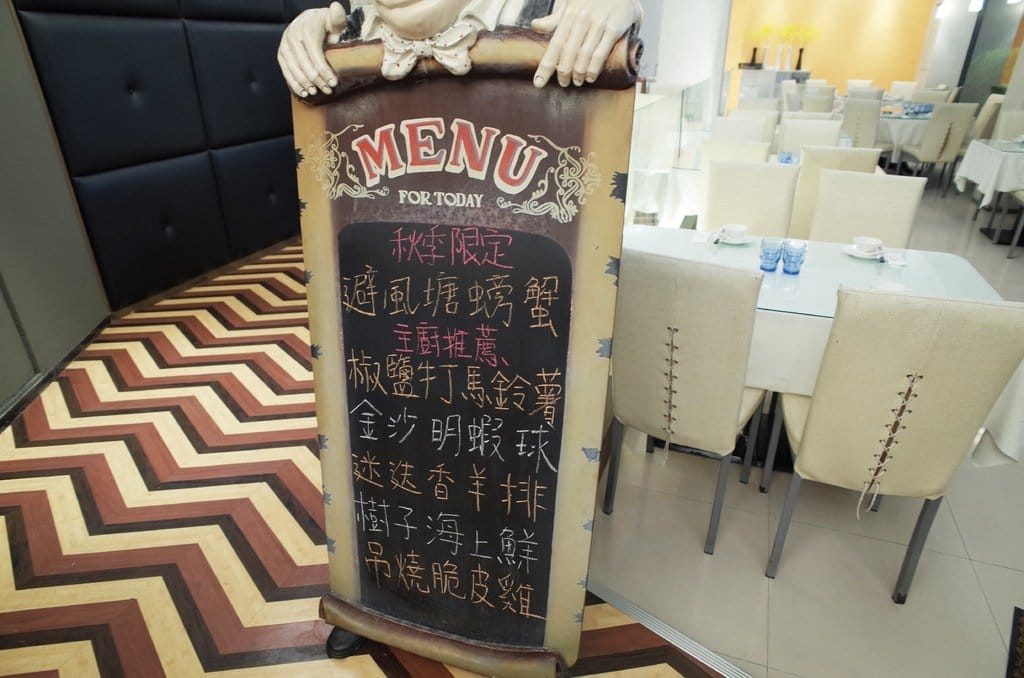 MENU
FOR TODAY
秋季限定
避風塘螃蟹
主廚推薦、
椒鹽牛打馬鈴薯
金沙明蝦球
迷迭香羊排
樹子海上鮮
吊燒脆皮雞